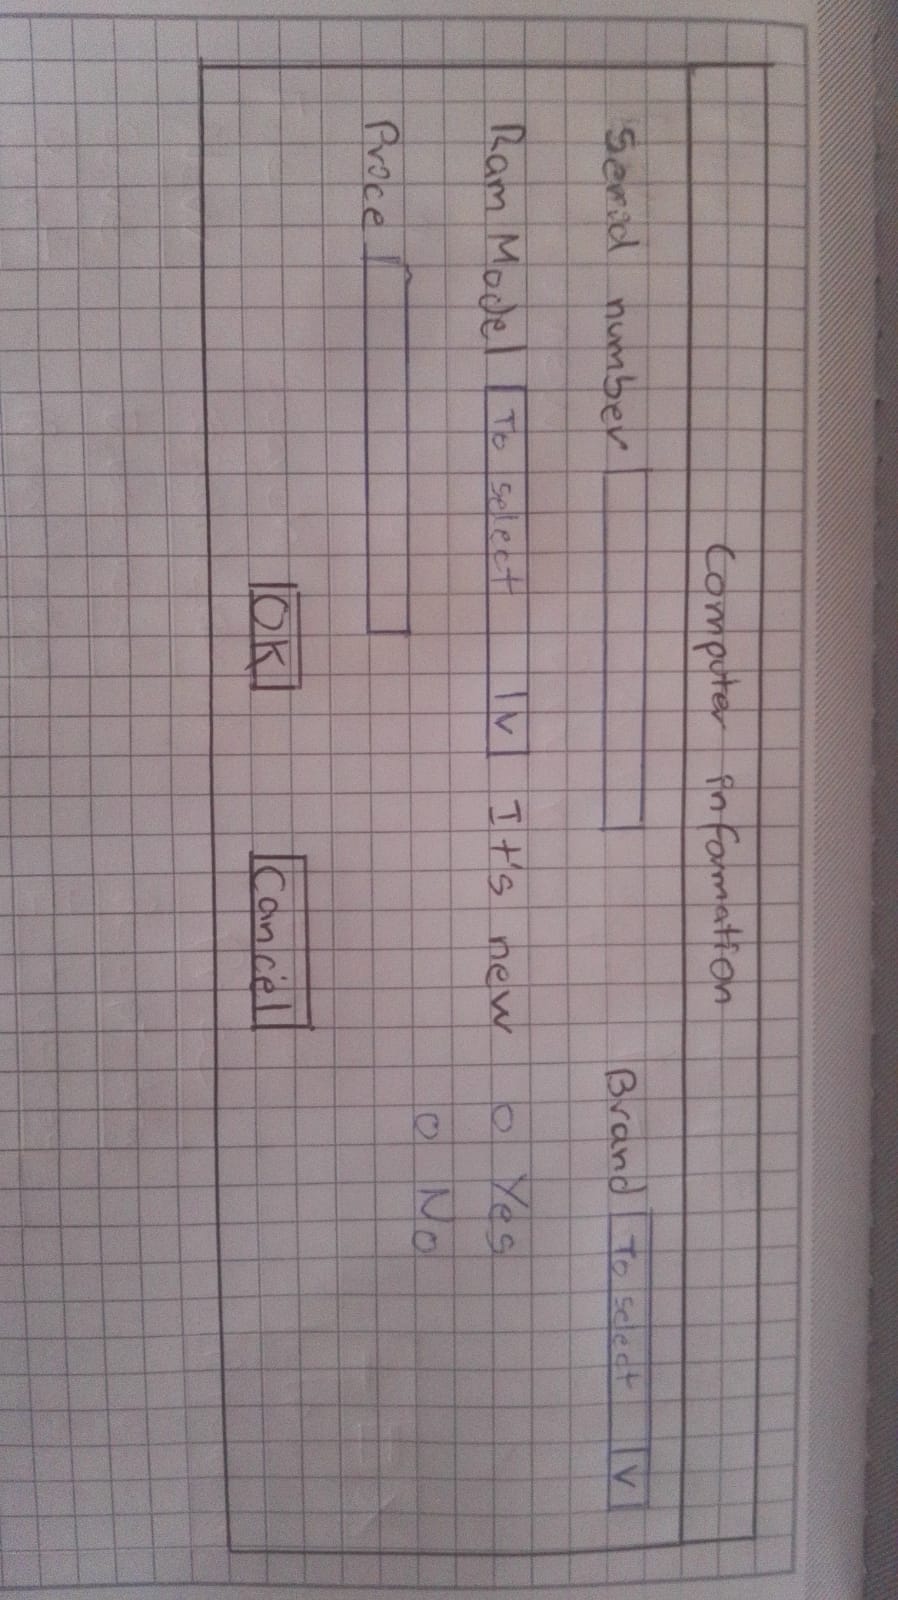 Computer information
Serial number Brand To select v
Ram Model To select v It's new o Yes
o No
Proce
OK Cancel